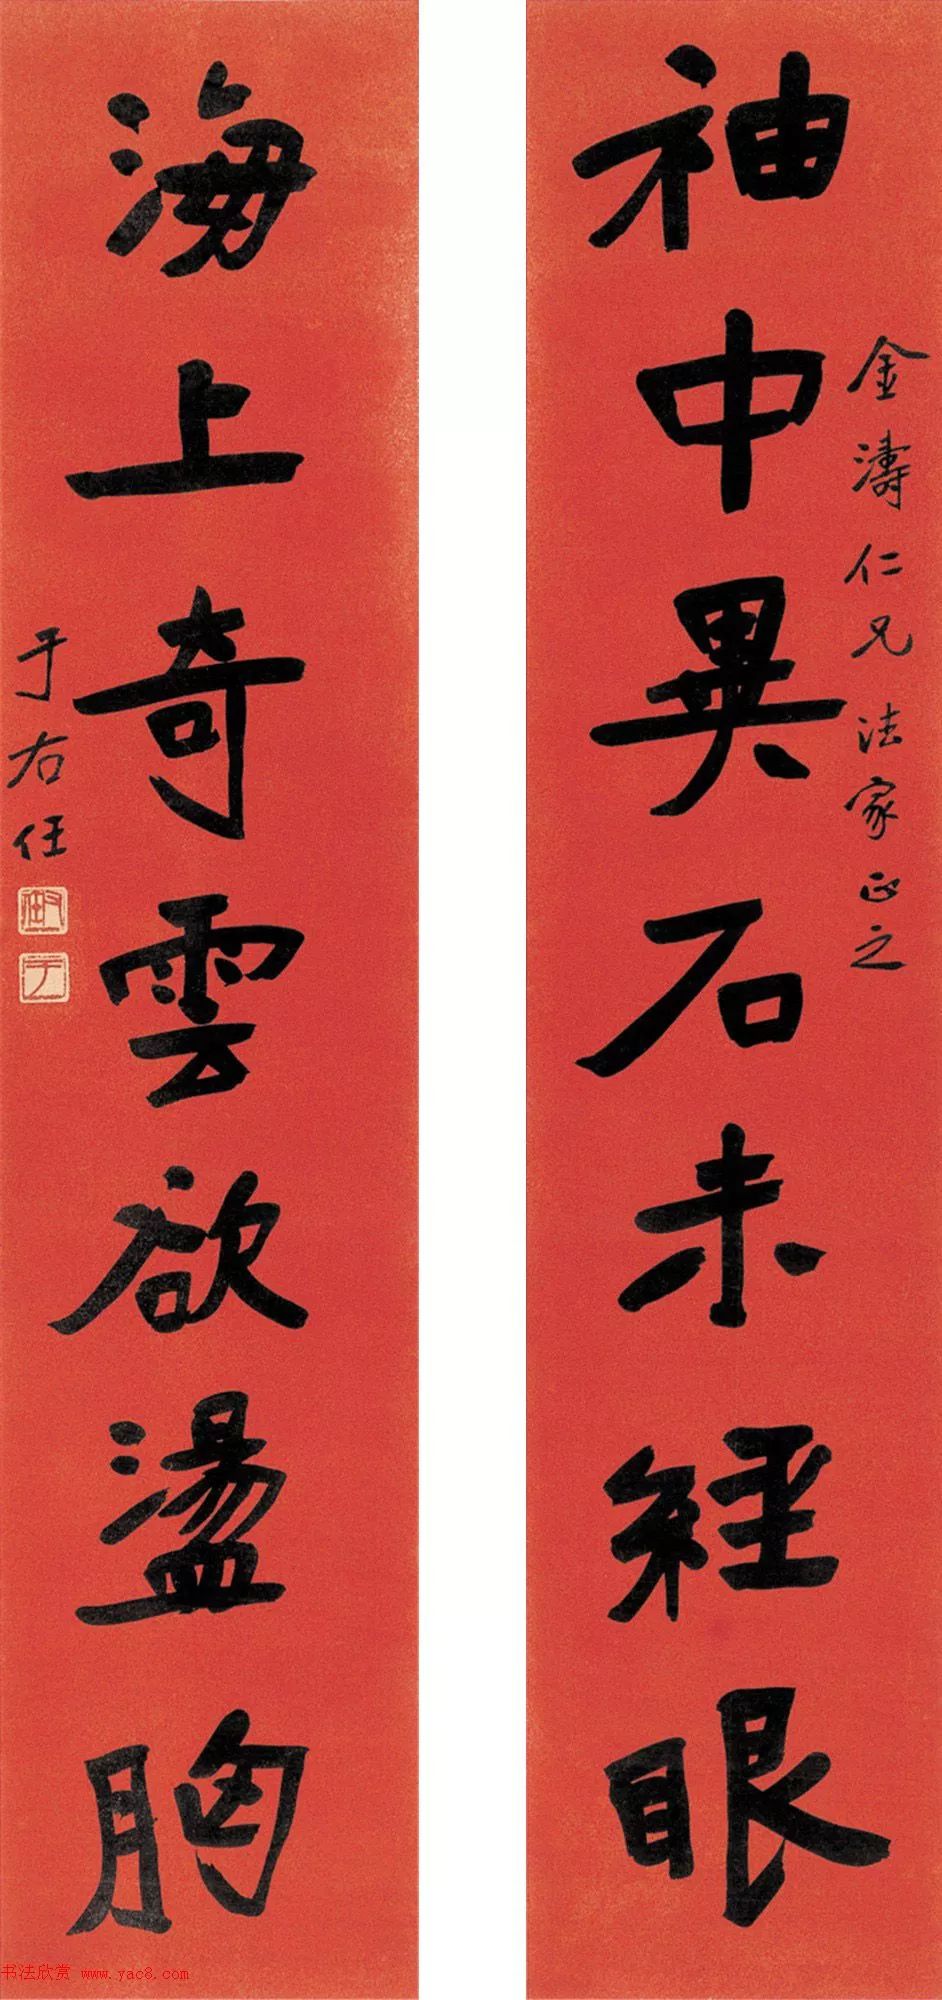 袖中異石未經眼
金濤仁兄法家正之
海上奇雲欲盪胸
于右任
右任
于
书法欣赏 www.yac8.com